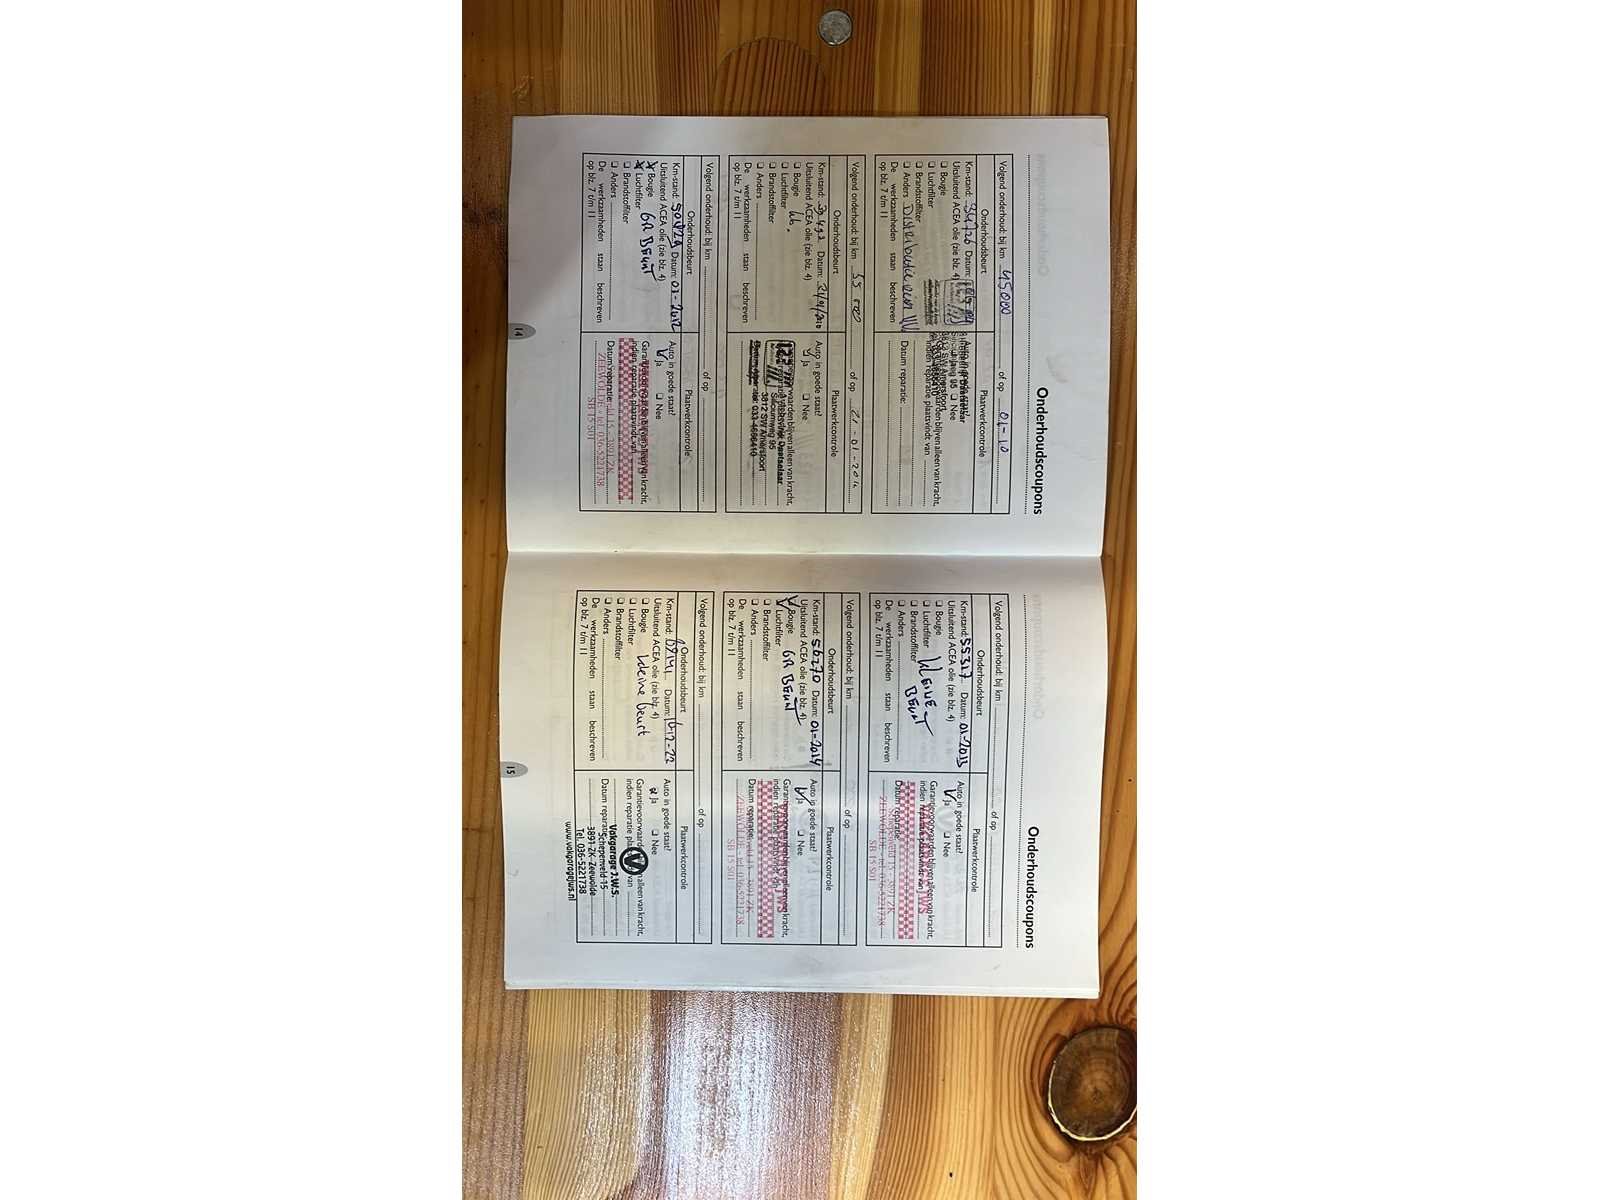 Onderhoudscoupons
Volgend onderhoud: bij km 45000 of op 01-10
Onderhoudsbeurt Plaatwerkcontrole
Km-stand: Datum:
Uitsluitend ACEA olie (zie blz. 4)
❑ Bougie
❑ Luchtfilter
❑ Brandstoffilter
❑ Anders Distributie
De werkzaamheden staan beschreven
op blz. 7 t/m 11
Auto in goede staat?
❑ Nee
3812 SW Amersfoort
Datum reparatie:
Volgend onderhoud: bij km 55 000 of op 21-01-2012
Onderhoudsbeurt Plaatwerkcontrole
Km-stand: 39492 Datum: 21/01/2010
Uitsluitend ACEA olie (zie blz. 4)
❑ Bougie
❑ Luchtfilter
❑ Brandstoffilter
❑ Anders
De werkzaamheden staan beschreven
op blz. 7 t/m 11
Auto in goede staat?
Ja ❑ Nee
Siliciumweg 95
3812 SW Amersfoort
033-4656410
Volgend onderhoud: bij km of op
Onderhoudsbeurt Plaatwerkcontrole
Km-stand: 50429 Datum: 01-2012
Uitsluitend ACEA olie (zie blz. 4)
Bougie
Luchtfilter GR BEURT
❑ Brandstoffilter
❑ Anders
De werkzaamheden staan beschreven
op blz. 7 t/m 11
Auto in goede staat?
Ja ❑ Nee
indien reparatie plaatsvindt van
Datum reparatie:
ZEEWOLDE - tel. 036-5221738
SB 15 S01
14
Onderhoudscoupons
Volgend onderhoud: bij km of op
Onderhoudsbeurt Plaatwerkcontrole
Km-stand: 55317 Datum: 01-2013
Uitsluitend ACEA olie (zie blz. 4)
❑ Bougie
❑ Luchtfilter KLEINE
❑ Brandstoffilter BEURT
❑ Anders
De werkzaamheden staan beschreven
op blz. 7 t/m 11
Auto in goede staat?
Ja ❑ Nee
Garantievoorwaarden blijven alleen van kracht,
indien reparatie plaatsvindt van
Datum reparatie:
Schepenveld 15 - 3891 ZK
ZEEWOLDE - tel. 036-5221738
SB 15 S01
Volgend onderhoud: bij km of op
Onderhoudsbeurt Plaatwerkcontrole
Km-stand: 56270 Datum: 01-2014
Uitsluitend ACEA olie (zie blz. 4)
Bougie GR BEURT
Luchtfilter
❑ Brandstoffilter
❑ Anders
De werkzaamheden staan beschreven
op blz. 7 t/m 11
Auto in goede staat?
Ja ❑ Nee
Datum reparatie:
ZEEWOLDE - tel. 036-5221738
SB 15 S01
Volgend onderhoud: bij km of op
Onderhoudsbeurt Plaatwerkcontrole
Km-stand: Datum: 10-12-22
Uitsluitend ACEA olie (zie blz. 4)
❑ Bougie
❑ Luchtfilter kleine beurt
❑ Brandstoffilter
❑ Anders
De werkzaamheden staan beschreven
op blz. 7 t/m 11
Auto in goede staat?
Ja ❑ Nee
Garantievoorwaarden blijven alleen van kracht,
indien reparatie van
Datum reparatie:
Vakgarage J.W.S.
Schepenveld 15
3891 ZK Zeewolde
Tel. 036-5221738
www.vakgaragejws.nl
15